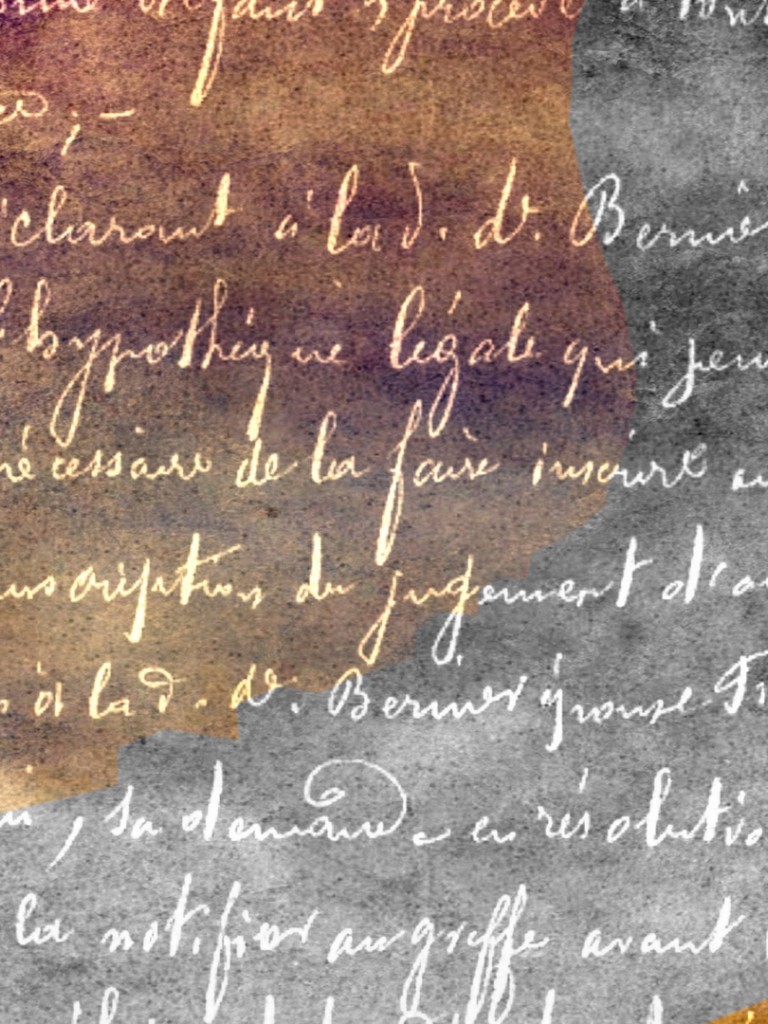 défaut, procédé à
;-
éclarant à la d. de. Berniè
l'hypothèque légale qui peu
nécessaire de la faire inscrire au
inscription du jugement d'a
à la d. de. Bernier épouse
, sa demande en résolutio
la notifier au greffe avant